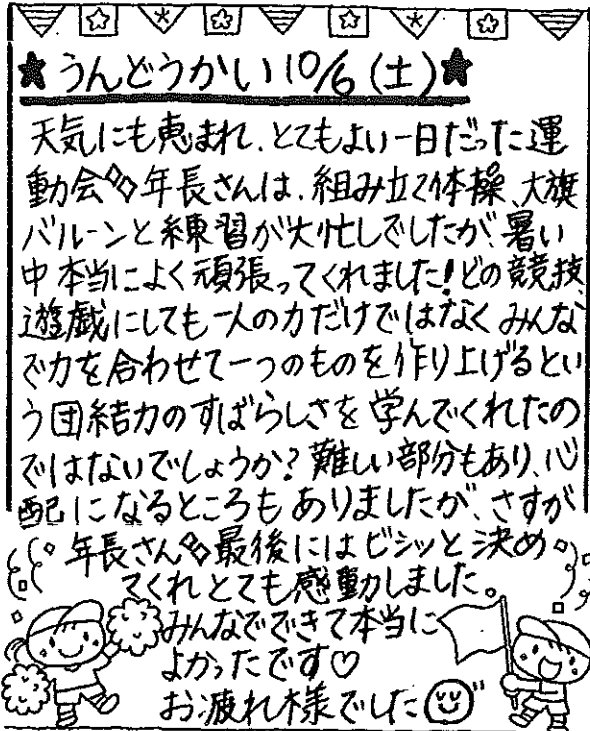 ★うんどうかい 10/6(土)★
天気にも恵まれ、とてもよい一日だった運
動会 年長さんは、組み立て体操、大旗
バルーンと練習が大忙しでしたが、暑い
中本当によく頑張ってくれました!どの競技、
遊戯にしても一人の力だけではなくみんな
で力を合わせて一つのものを作り上げるとい
う団結力のすばらしさを学んでくれたの
ではないでしょうか?難しい部分もあり、心
配になるところもありましたが、さすが
年長さん 最後にはビシッと決め
てくれとても感動しました。
みんなでできて本当に
よかったです♡
お疲れ様でした